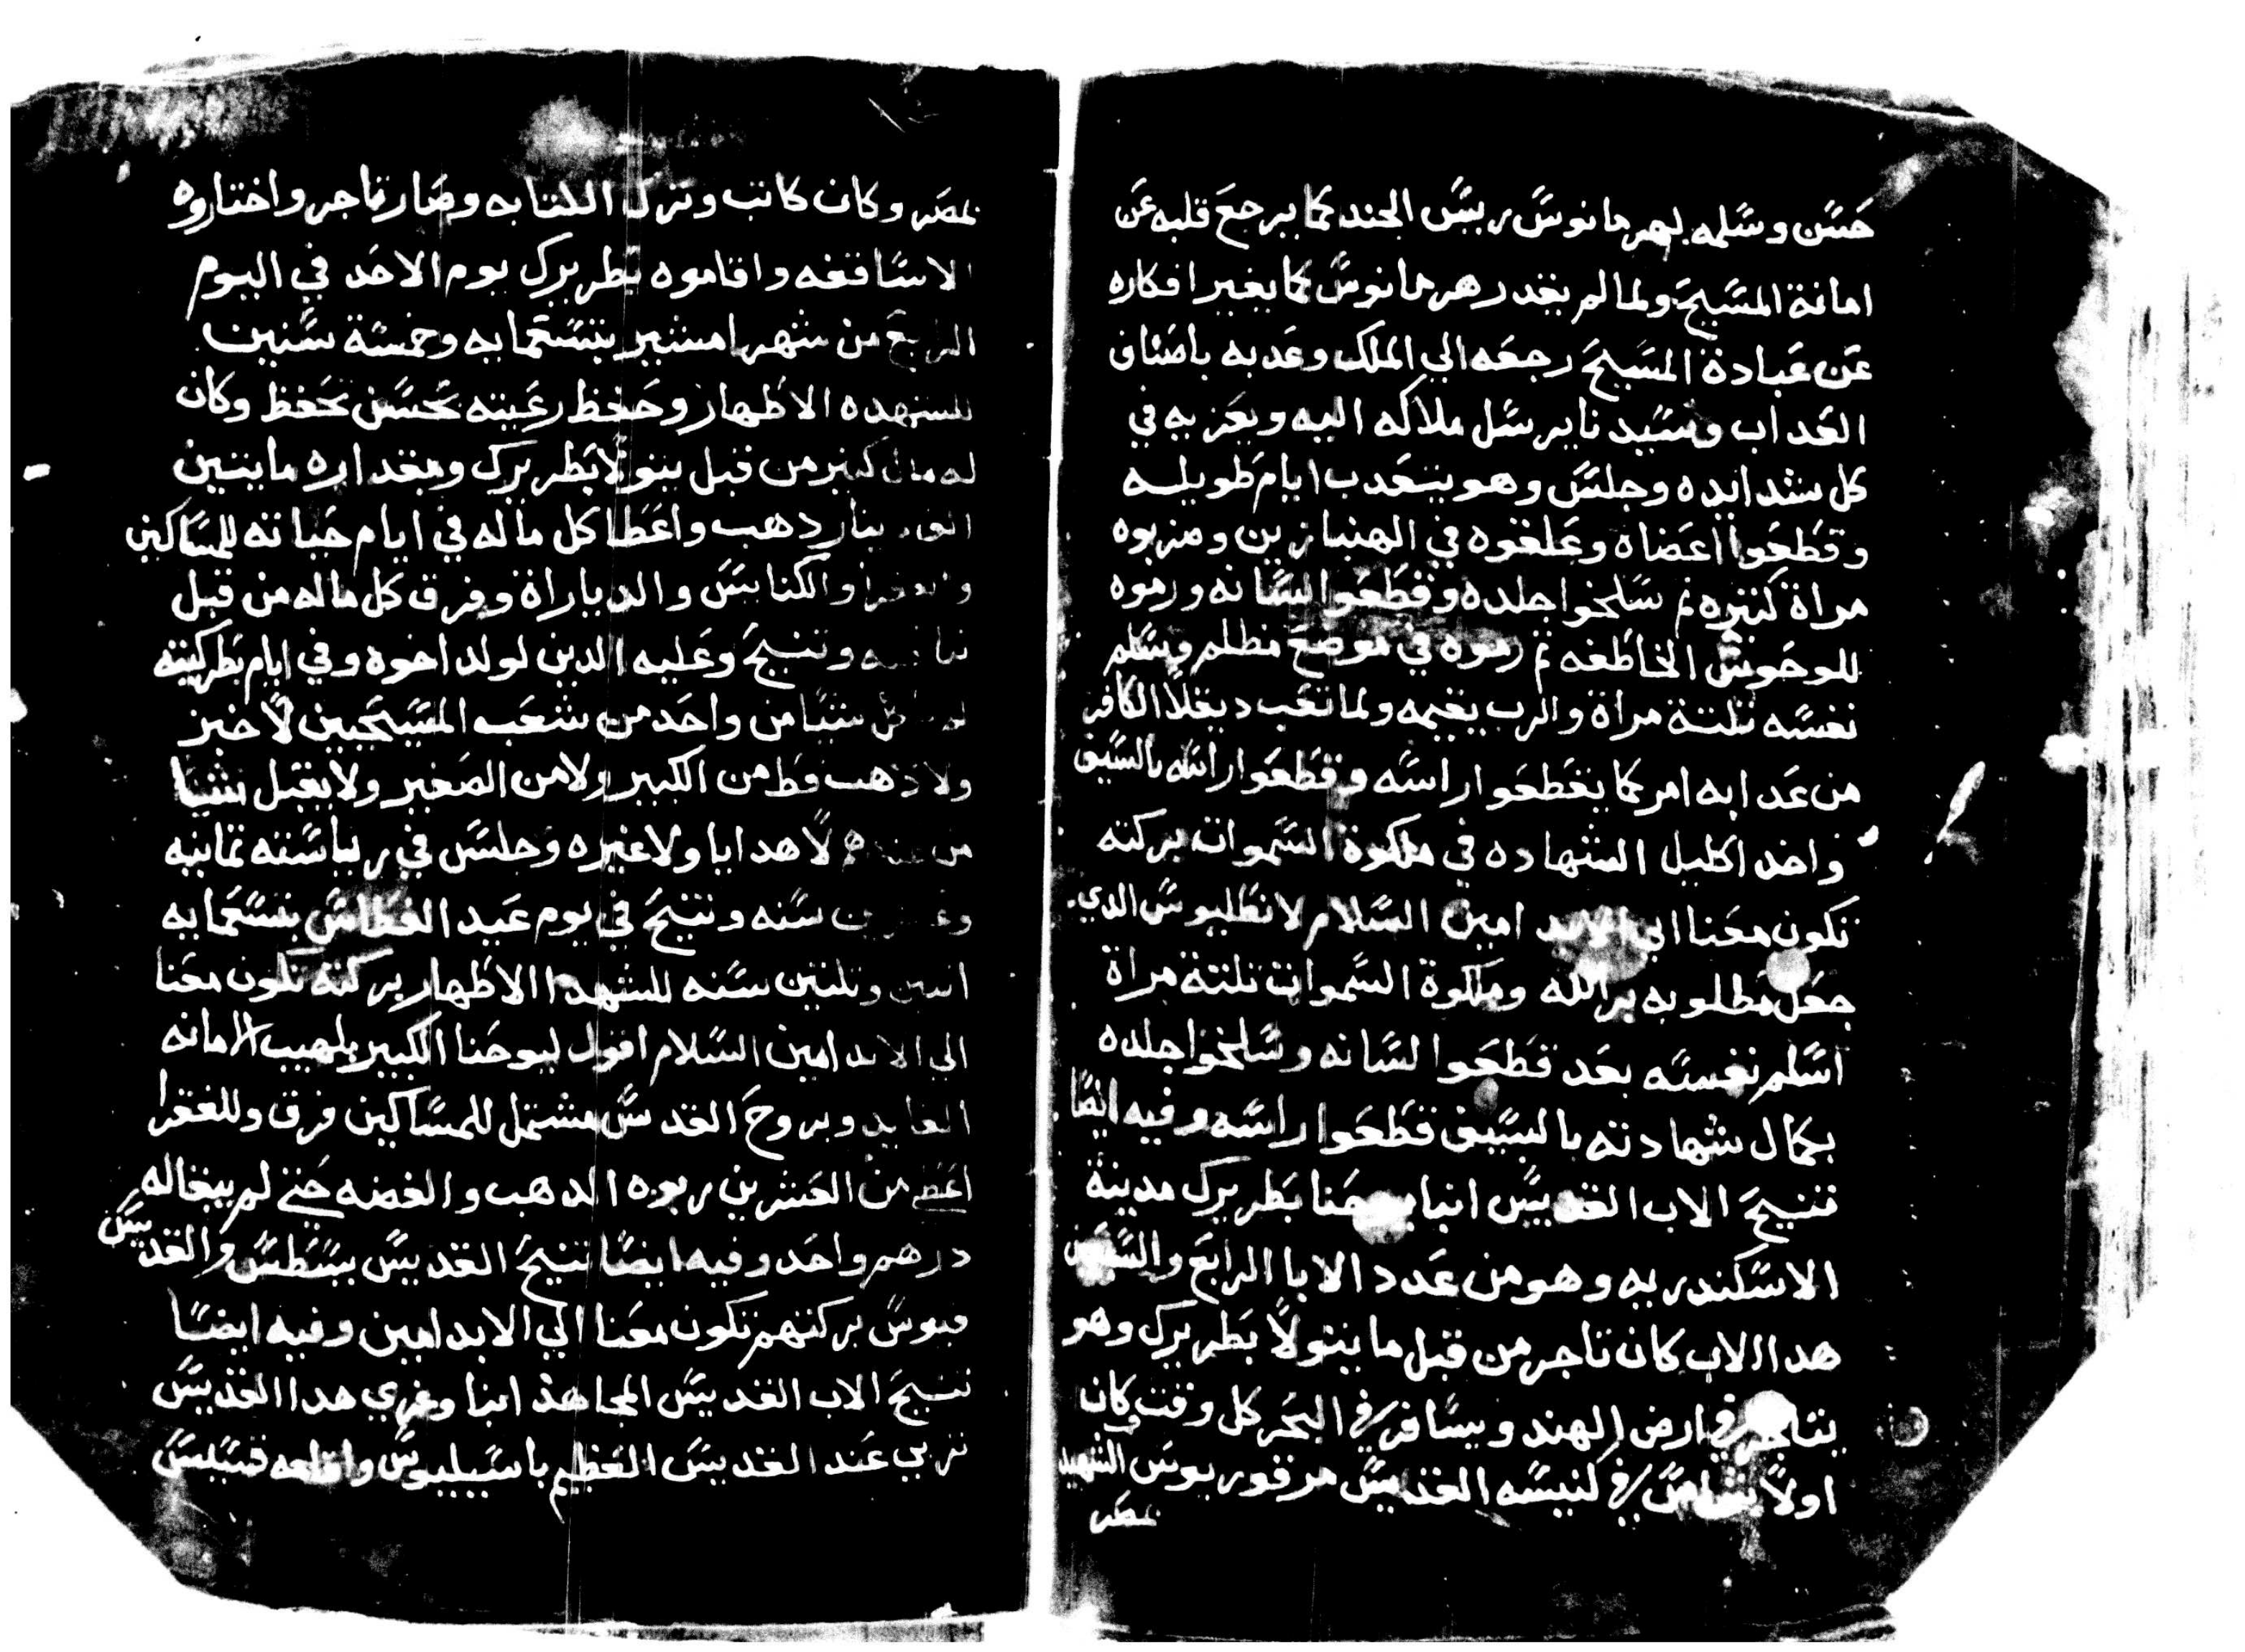 حسن وسلمه لهرمانوس رييس الجند كما يرجع قلبه عن
امانة المسيح ولما لم يقدر هرمانوس كما يغير افكاره
عن عبادة المسيح رجعه الي الملك وعدبه باصناف
العداب وسيدنا يرسل ملاكه اليه ويعزيه في
كل شدايده وجلس وهو يتعدب ايام طويله
وقطعوا اعضاه وعلقوه في الهنبازين وضربوه
مراة كتيره تم سلخوا جلده وقطعوا لسانه ورموه
للوحوش الخاطفه تم رموه في موضع مظلم وسلم
نفسه تلتة مراة والرب يقيمه ولما تعب ديقلا الكافر
من عدابه امر كما يقطعوا راسه وقطعوا راسه بالسيف
واخد اكليل الشهاده في ملكوة السموات بركته
تكون معنا الي الابد امين السلام لانطليوس الدي
جعل مطلوبه بر الله وملكوة السموات تلتة مراة
اسلم نفسه بعد قطعوا لسانه وسلخوا جلده
بكمال شهادته بالسيف قطعوا راسه وفيه ايضا
تنيح الاب القديس انبا يوحنا بطريرك مدينة
الاسكندريه وهو من عدد الابا الرابع والسبعين
هدا الاب كان تاجر من قبل ما يتولا بطريرك وهو
يتاجر في ارض الهند ويسافر في البحر كل وقت وكان
اولا شماس في كنيسه القديس مرقوريوس الشهيد
بمصر
بمصر وكان كاتب وترك الكتابه وصار تاجر واختاروه
الاساقفه واقاموه بطريرك يوم الاحد في اليوم
الرابع من شهر امشير بتسعمايه وخمسة سنين
للشهده الاطهار وحفظ رعيته بحسن تحفظ وكان
له مال كتير من قبل يتولا بطريرك ومقداره مايتين
الف دينار دهب واعطا كل ماله في ايام حياته للمساكين
والفقرا والكنايس والدياراة وفرق كل ماله من قبل
نياحته وتنيح وعليه الدين لولد اخوه وفي ايام بطركيته
لم ياكل شيا من واحد من شعب المسيحيين لا خبز
ولا دهب قط من الكبير ولا من الصغير ولا يقبل شيا
من عندهم لا هدايا ولا غيره وجلس في رياسته تمانيه
وعشرين سنه وتنيح في يوم عيد الغطاس بتسعمايه
اتنين وتلتين سنه للشهدا الاطهار بركته تكون معنا
الي الابد امين السلام اقول ليوحنا الكبير بلهيب الامانه
العابد وبروح القدس مشتمل للمساكين فرق وللفقرا
اعطي من العشرين ربوه الدهب والفضه حتي لم يبقا له
درهم واحد وفيه ايضا تنيح القديس بسطس والقديس
بركتهم تكون معنا الي الابد امين وفيه ايضا
تنيح الاب القديس المجاهد انبا وغري هدا القديس
تربي عند القديس العظيم باسيليوس واقامه قسيس